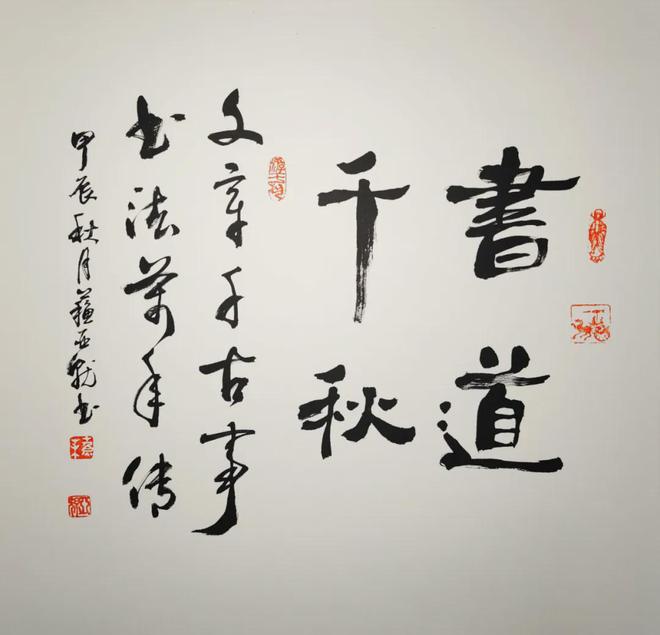 書道
千秋
文章千古事
书法万年传
甲辰秋月蘇亚戟书